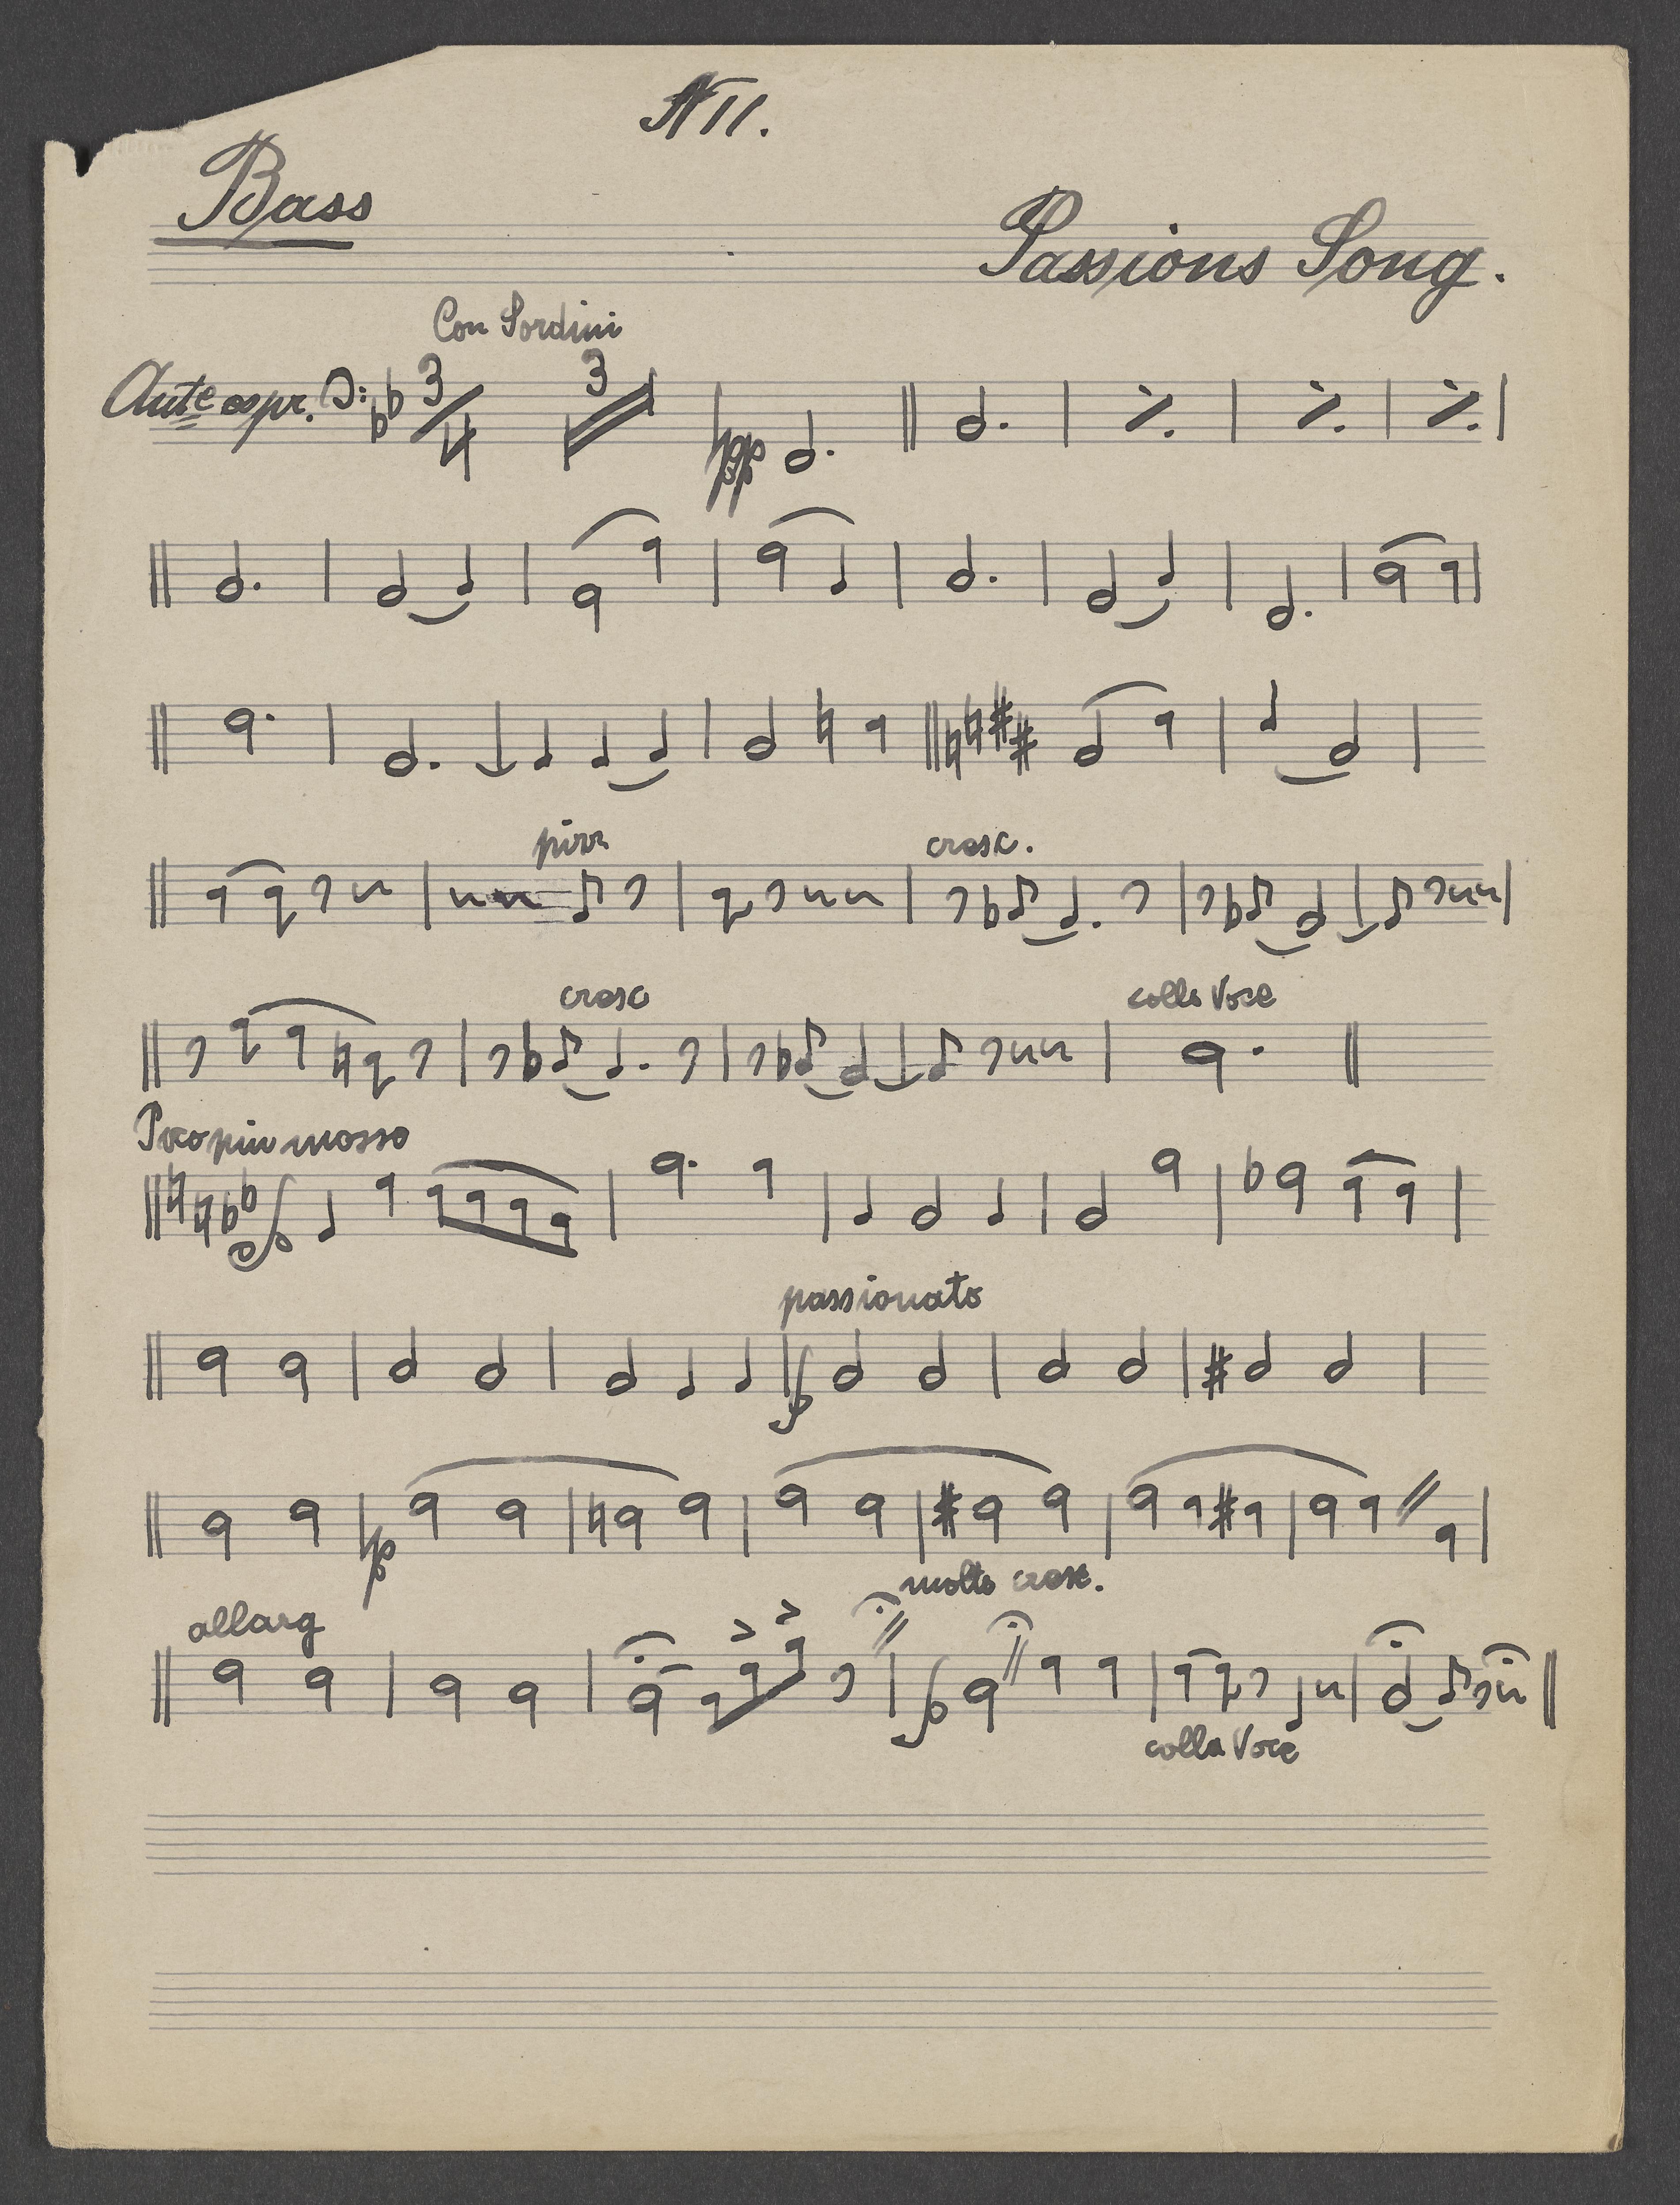 N 11.
Bass
Passions Song.
Con Sordini
Ante espr. 3/4 3
pp
pizz
cresc.
cresc
colla Voce
Poco piu mosso
sf
passionato
f
p
molto cresc.
allarg
f
colla Voce